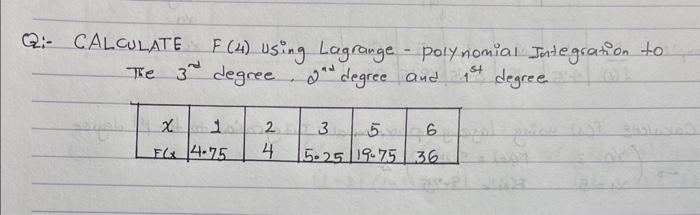 Q:- CALCULATE F(4) using Lagrange - polynomial Integration to
The 3rd degree, 2nd degree and 1st degree
x 1 2 3 5 6
F(x 4.75 4 5.25 19.75 36